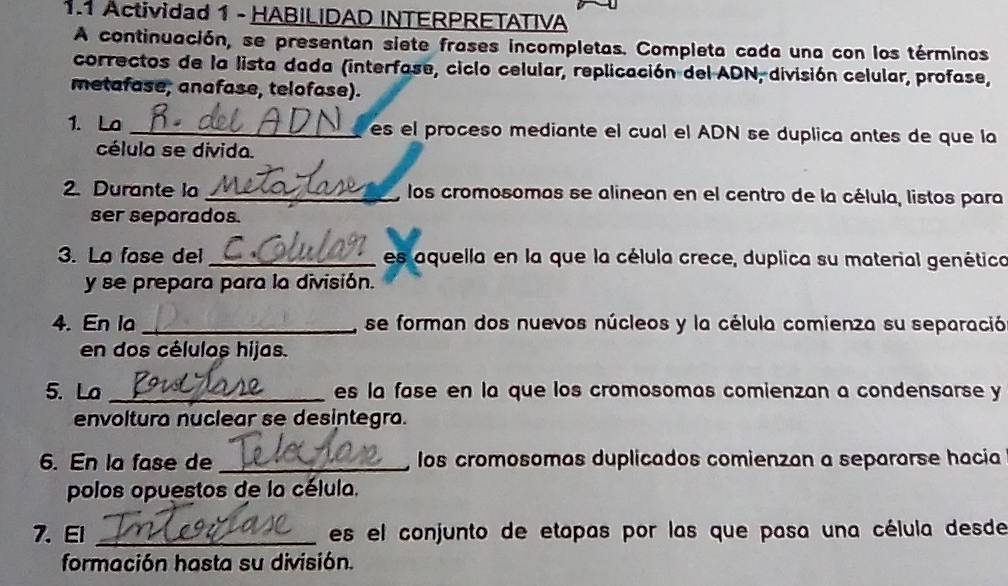 1.1 Actividad 1 - HABILIDAD INTERPRETATIVA
A continuación, se presentan siete frases incompletas. Completa cada una con los términos
correctos de la lista dada (interfase, ciclo celular, replicación del ADN, división celular, profase,
metafase, anafase, telofase).
1. La R. del ADN es el proceso mediante el cual el ADN se duplica antes de que la
célula se divida.
2. Durante la Metafase, los cromosomas se alinean en el centro de la célula, listos para
ser separados.
3. La fase del C. Celular es aquella en la que la célula crece, duplica su material genético
y se prepara para la división.
4. En la ____, se forman dos nuevos núcleos y la célula comienza su separació
en dos células hijas.
5. La ____ es la fase en la que los cromosomas comienzan a condensarse y
envoltura nuclear se desintegra.
6. En la fase de Telofase, los cromosomas duplicados comienzan a separarse hacia
polos opuestos de la célula.
7. El Interfase es el conjunto de etapas por las que pasa una célula desde
formación hasta su división.